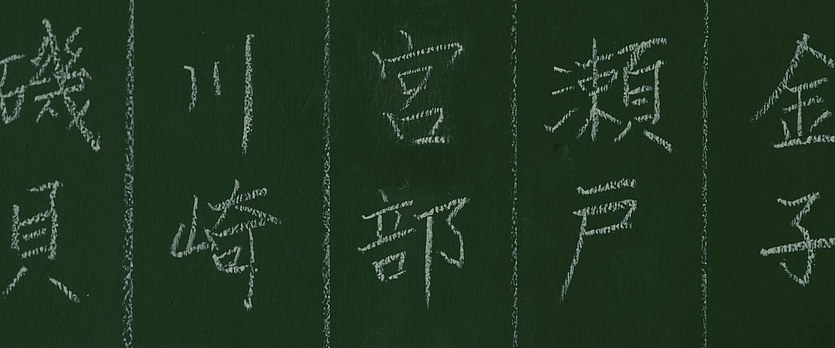 金子
瀬戸
宮部
川崎
磯貝